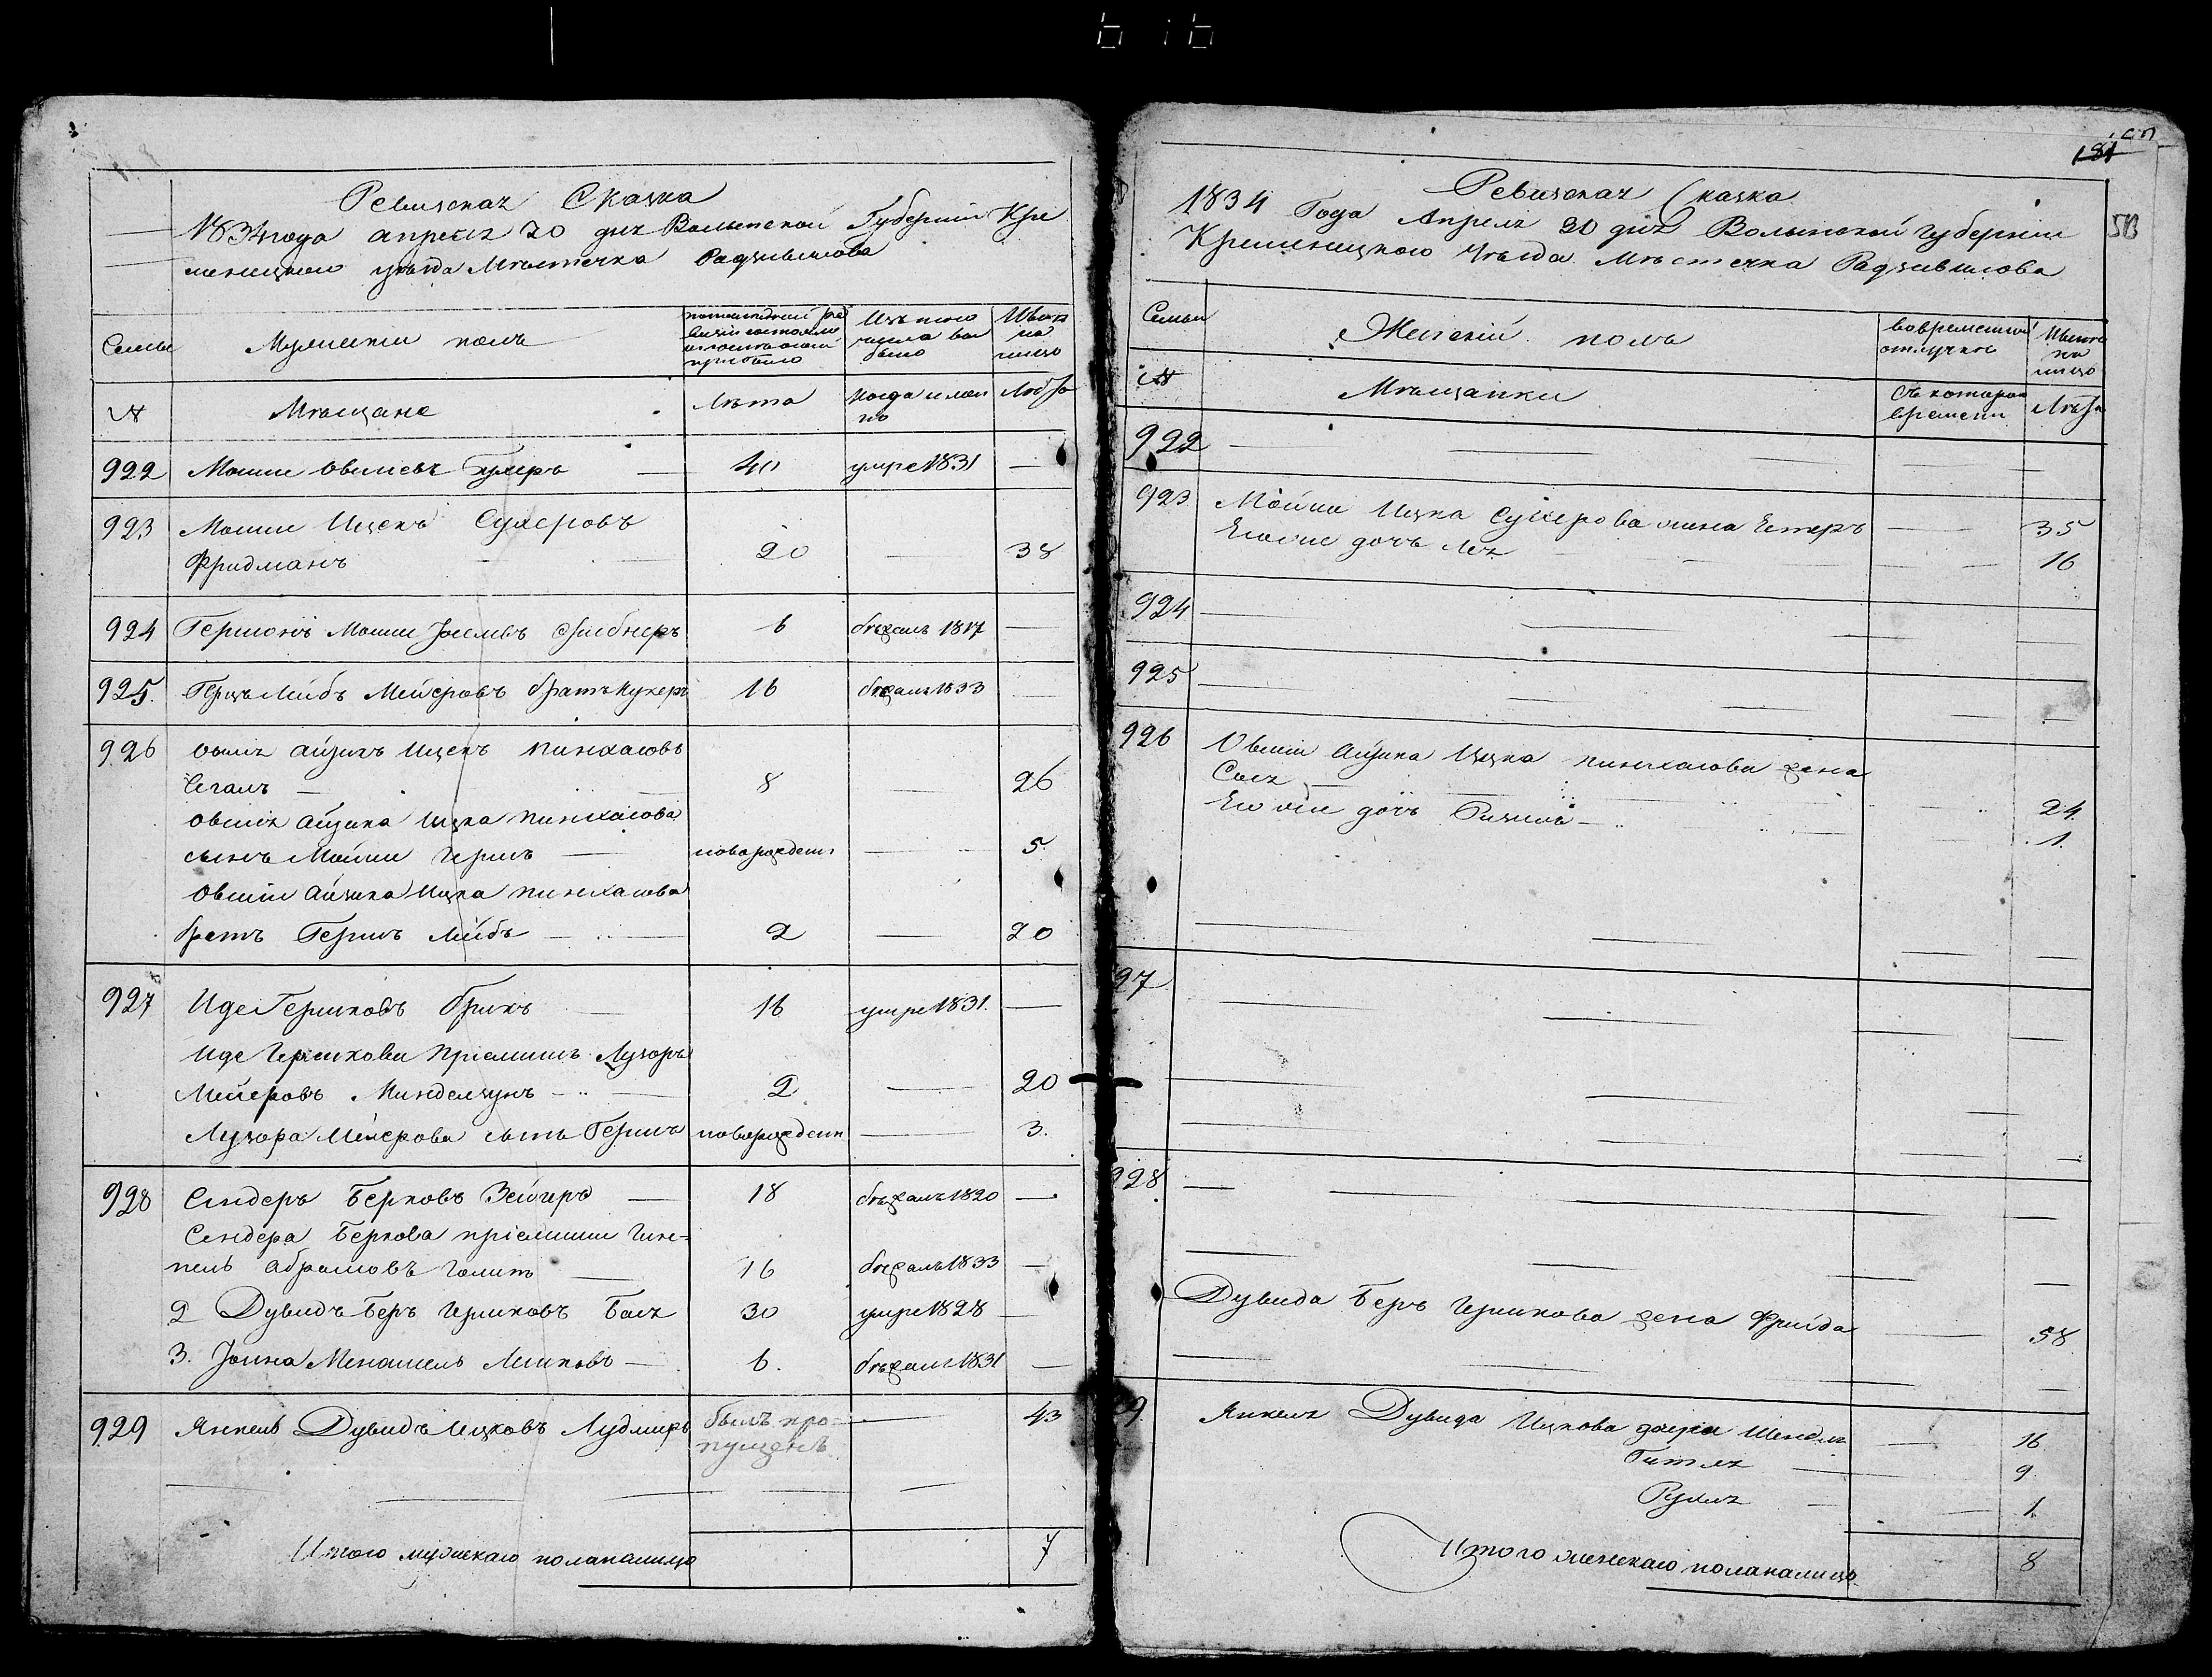 Ревизская Сказка
1834 года апреля 20 дня Волынской Губернии Кре
менецкого уѣзда Мѣстечка Радзивилова
Семьи
Мужеской полъ
Изъ того числа выбыло
Нынѣ на лицо
№
Мѣщане
Лѣта
Когда имен но
Лѣта
922 Мошко Овшиевъ 40 умре 1831 —
923 Мошко Ицекъ Сухеровъ
Фридманъ 20 — 38
924 Гершонъ Мошко 6 бѣжалъ 1817 —
925. Герцъ Лейбъ Мейеровъ братъ Кухеръ 16 бѣжалъ 1833 —
926 Овшія Айзикъ Ицекъ Пинхасовъ
Сегалъ — 8 — 26
Овшія Айзика Ицка Пинхасова
сынъ Мойше Гершъ — новорожден — 5
Овшія Айзика Ицка Пинхасова
братъ Гершъ Лейбъ — 2 — 20
927 Иде Гершковъ Брикъ — 16 умре 1831. —
Иде Гершкова Пріемышъ Лузоръ
Мейеровъ — 2 — 20
Лузора Мейерова сынъ Гершъ новорожден — 3.
928 Сендеръ Берковъ Зейгеръ — 18 бѣжалъ 1820 —
Сендера Беркова пріемыши Гим-
пель Абрамовъ — 16 бѣжалъ 1833 —
2 Дувидъ Беръ Гершковъ 30 умре 1828 —
3. Менашель — 6. бѣжалъ 1831 —
929 Янкель Дувидъ Ицковъ Лудмиръ былъ про- — 43
пущенъ
Итого мужескаго пола налицо 7
181
513
Ревизская Сказка
1834 Года Апреля 20 дня Волынской губерніи
Кременецкого Уѣзда Мѣстечка Радзивилова
Семьи
Женскій полъ
Во временной отлучкѣ
Нынѣ на лицо
№
Мѣщанки
Съ котораго времени
Лѣта
922 —
923 Мойше Ицка Сухерова жена Естеръ — 35
Его же дочь Лея — 16
924 —
925 —
926 Овшіи Айзика Ицка Пинхасова жена
Сося 24
Его же дочь — 1
927 —
928 —
Дувида Беръ Гершкова жена Фрейда — 58
929 Янкеля Дувида Ицкова дочери Шендля — 16
Гитля — 9
Рухля — 1
Итого женскаго пола налицо 8